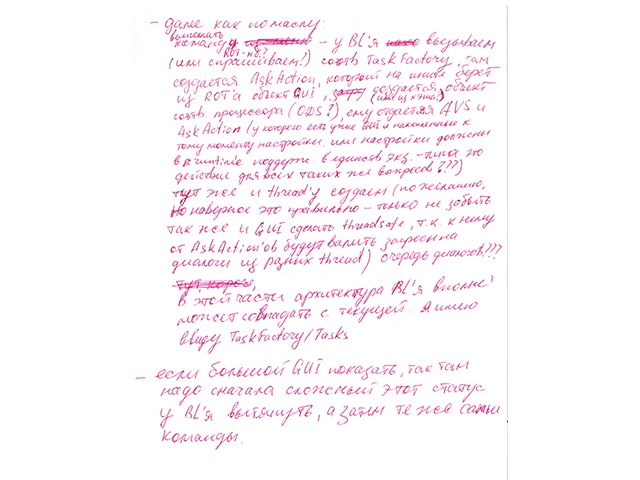 - далее как по маслу:
выполнить
команду - у BL'я вызываем
ROT-на?
(или спрашиваем!) соотв TaskFactory, там
создается AskAction, который на шите берет
из ROT'а объект GUI, создается объект
(или из кэша?)
соотв процессора (ODS?), ему отдается AVS и
AskAction (у которого есть уже GUI и накопленные к
тому моменту настройки. или настройки должны
в runtime поддерж. в единств экз. - типа это
действие для всех таких же вопросов???)
тут же и thread'у создаем (по желанию,
но наверное это правильно - только не забыть
так же и GUI сделать threadsafe, т.к. к нему
от AskAction'ов будут валить запросы на
диалоги из разных thread) очередь диалогов???
Тут, короче,
В этой части архитектура BL'я вполне
может совпадать с текущей. Я имею
ввиду TaskFactory/Tasks
- если большой GUI показать, так там
надо сначала сложный этот статус
у BL'я вытянуть, а затем те же самые
команды.